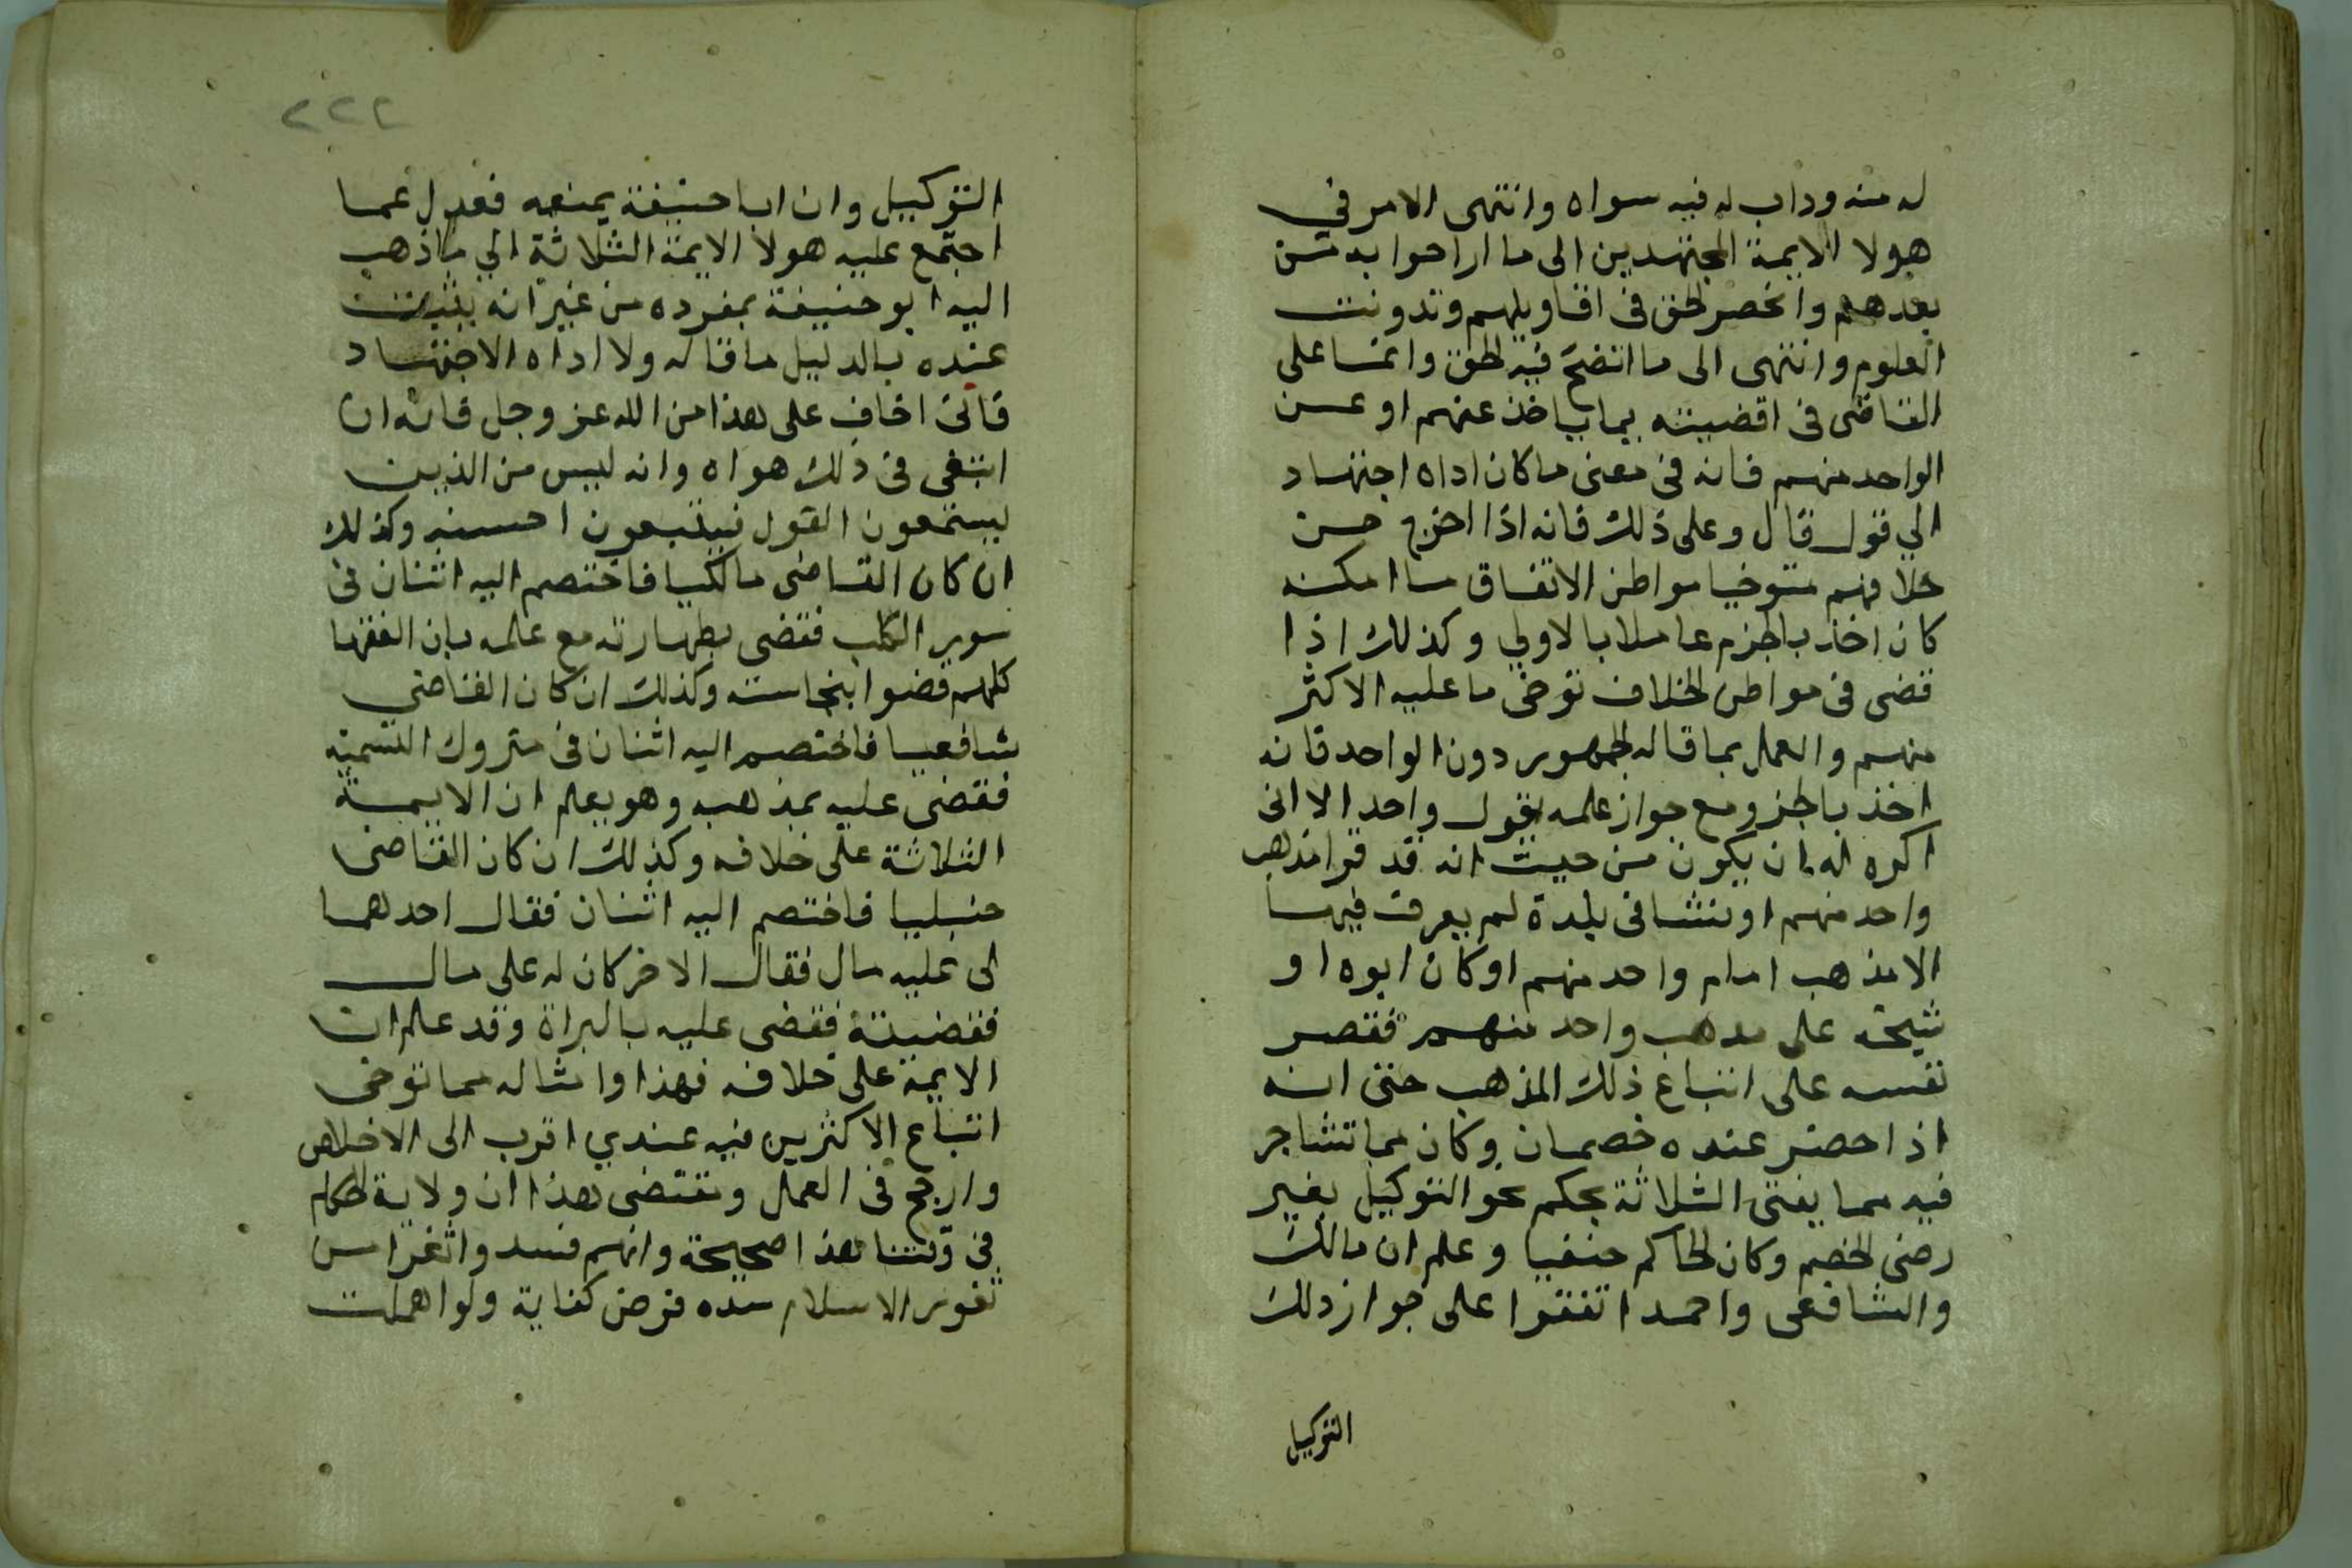 له منه وداب له فيه سواه وانتهى الامر في
هولا الايمة المجتهدين الى ما اراحوا به من
بعدهم وانحصر الحق في اقاويلهم وتدونت
العلوم وانتهى الى ما اتضح فيه الحق وانما على
القاضى فى اقضيته بما ياخذ عنهم او عن
الواحد منهم فانه فى معنى ما كان اداه اجتهاد
الي قول قال وعلى ذلك فانه اذا اخرج من
خلافهم متوخيا مواطن الاتفاق ما امكنه
كان اخذ بالحزم عاملا بالاولي وكذلك اذا
قضى فى مواطن الخلاف توخى ما عليه الاكثر
منهم والعمل بما قاله الجمهور دون الواحد فانه
اخذ بالحزم مع جواز علمه بقول واحد الا انى
اكره له ان يكون من حيث انه قد قرا مذهب
واحد منهم او نشا فى بلدة لم يعرف فيها
الا مذهب امام واحد منهم او كان ابوه او
شيخه على مذهب واحد منهم فقصر
نفسه على اتباع ذلك المذهب حتى انه
اذا حضر عنده خصمان وكان مما تشاجر
فيه مما يفتى الثلاثة بحكم نحو التوكيل بغير
رضى الخصم وكان الحاكم حنفيا وعلم ان مالك
والشافعى واحمد اتفقوا على جواز ذلك
التوكيل
٢٢٢
التوكيل وان ابا حنيفة يمنعه فعدل عما
اجتمع عليه هولا الايمة الثلاثة الي ما ذهب
اليه ابو حنيفة بمفرده من غير انه يثبت
عنده بالدليل ما قاله ولا اداه الاجتهاد
فانى اخاف على هذا من الله عز وجل فانه ان
ابتغى فى ذلك هواه وانه ليس من الذين
يستمعون القول فيتبعون احسنه وكذلك
ان كان القاضى مالكيا فاختصم اليه اثنان فى
سور الكلب فقضى بطهارته مع علمه بان الفقها
كلهم قضوا بنجاسته وكذلك ان كان القاضي
شافعيا فاختصم اليه اثنان فى متروك التسمية
فقضى عليه بمذهبه وهو يعلم ان الايمة
الثلاثة على خلافه وكذلك ان كان القاضى
حنبليا فاختصم اليه اثنان فقال احدهما
لى عليه مال فقال الاخر كان له على مال
فقضيته فقضى عليه بالبراة وقد علم ان
الايمة على خلافه فهذا وامثاله مما توخى
اتباع الاكثرين فيه عندي اقرب الى الاخلاص
وارجح فى العمل ونقتضى بهذا ان ولاية الحكام
فى وقتنا هذا صحيحة وانهم قد سدوا ثغرا من
ثغور الاسلام سده فرض كفاية ولو اهملت